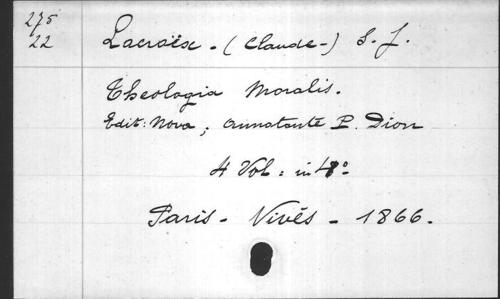 275
22
Lacroix. - (Claude-) S. J.
Theologia Moralis.
Edit: Nova; Annotante P. Dion
4 Vol: in 4º
Paris - Vivès - 1866.